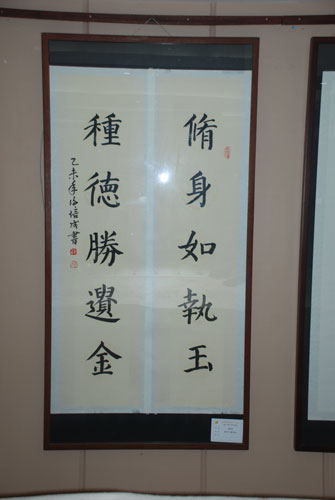 脩身如執玉
種德勝遺金
乙未年
培
書